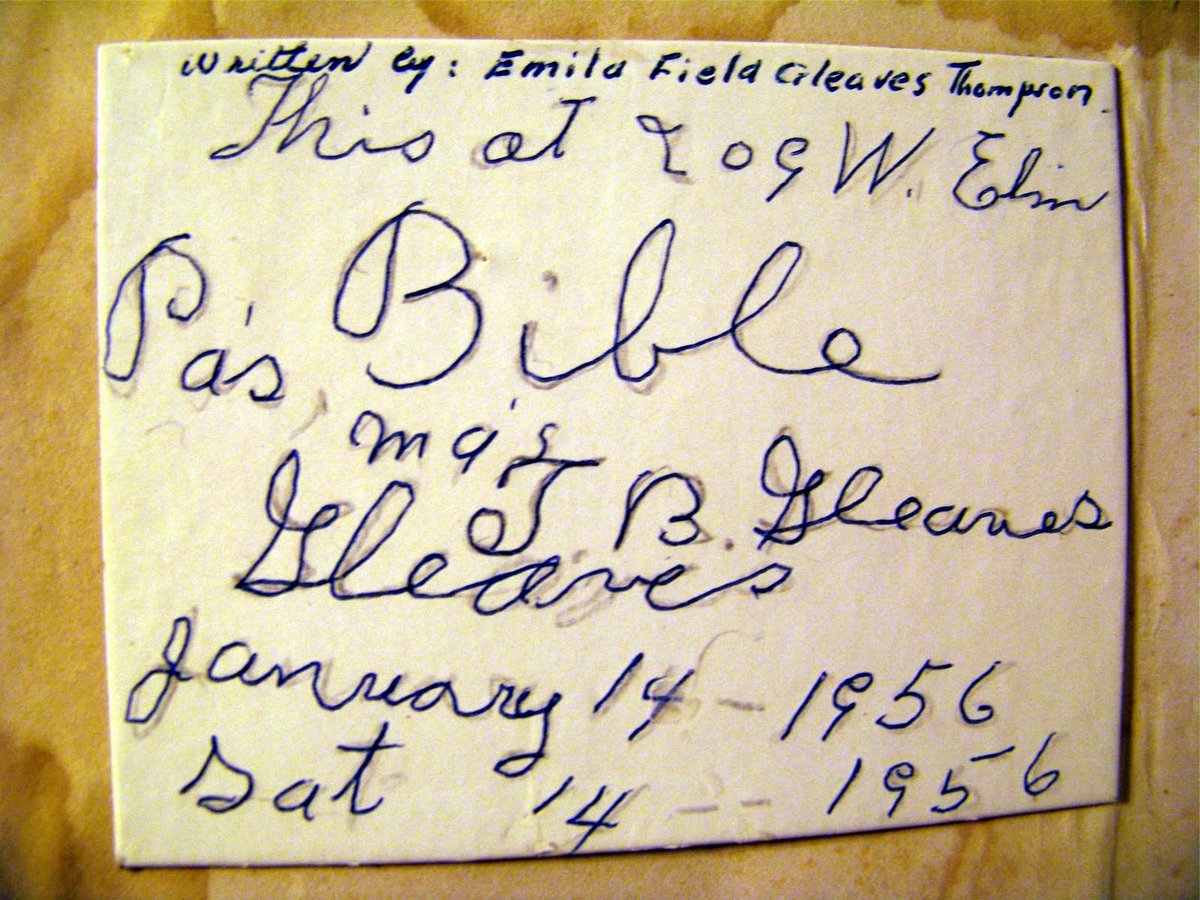 Written by: Emila Field Gleaves Thompson.
This at 209 W. Elm
Pa's Bible
ma's
J B. Gleaves
Gleaves
January 14 - 1956
Sat 14 -- 1956